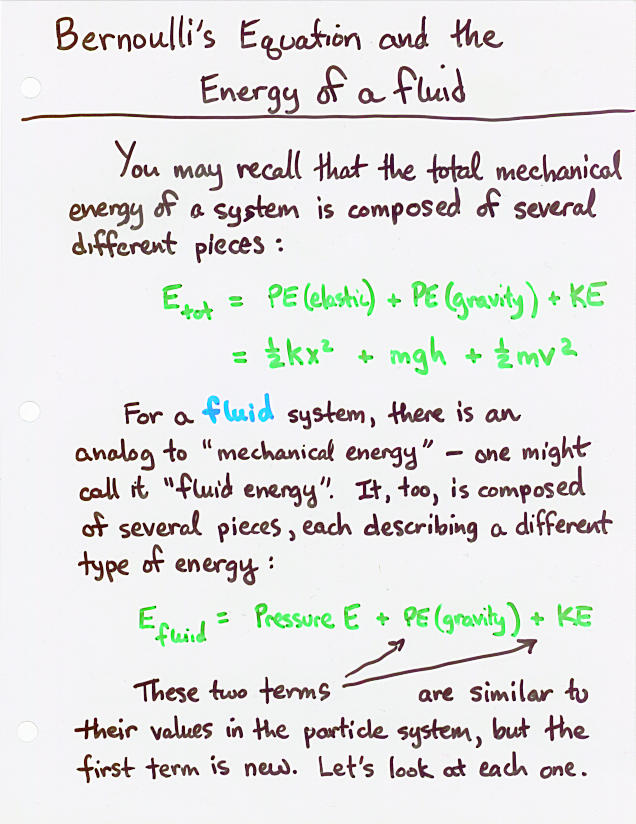 Bernoulli's Equation and the
Energy of a fluid
You may recall that the total mechanical
energy of a system is composed of several
different pieces :
E_tot = PE (elastic) + PE (gravity) + KE
= ½kx² + mgh + ½mv²
For a fluid system, there is an
analog to "mechanical energy" – one might
call it "fluid energy". It, too, is composed
of several pieces, each describing a different
type of energy :
E_fluid = Pressure E + PE (gravity) + KE
These two terms are similar to
their values in the particle system, but the
first term is new. Let's look at each one.